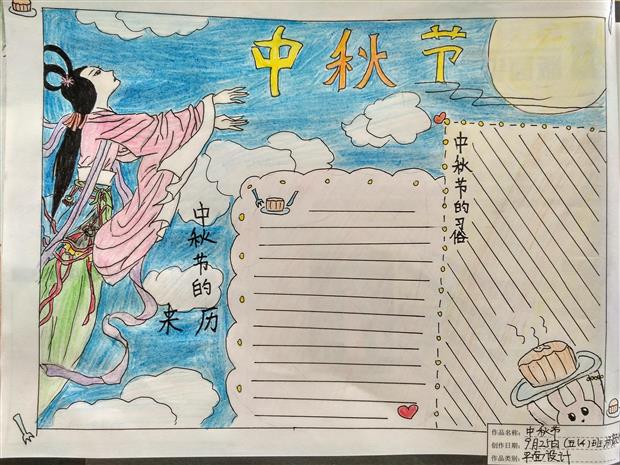 中秋节
中秋节的习俗
中秋节的
来历
作品名称: 中秋节
创作日期: 9月25日 (五14) 班
作品类别: 平面设计